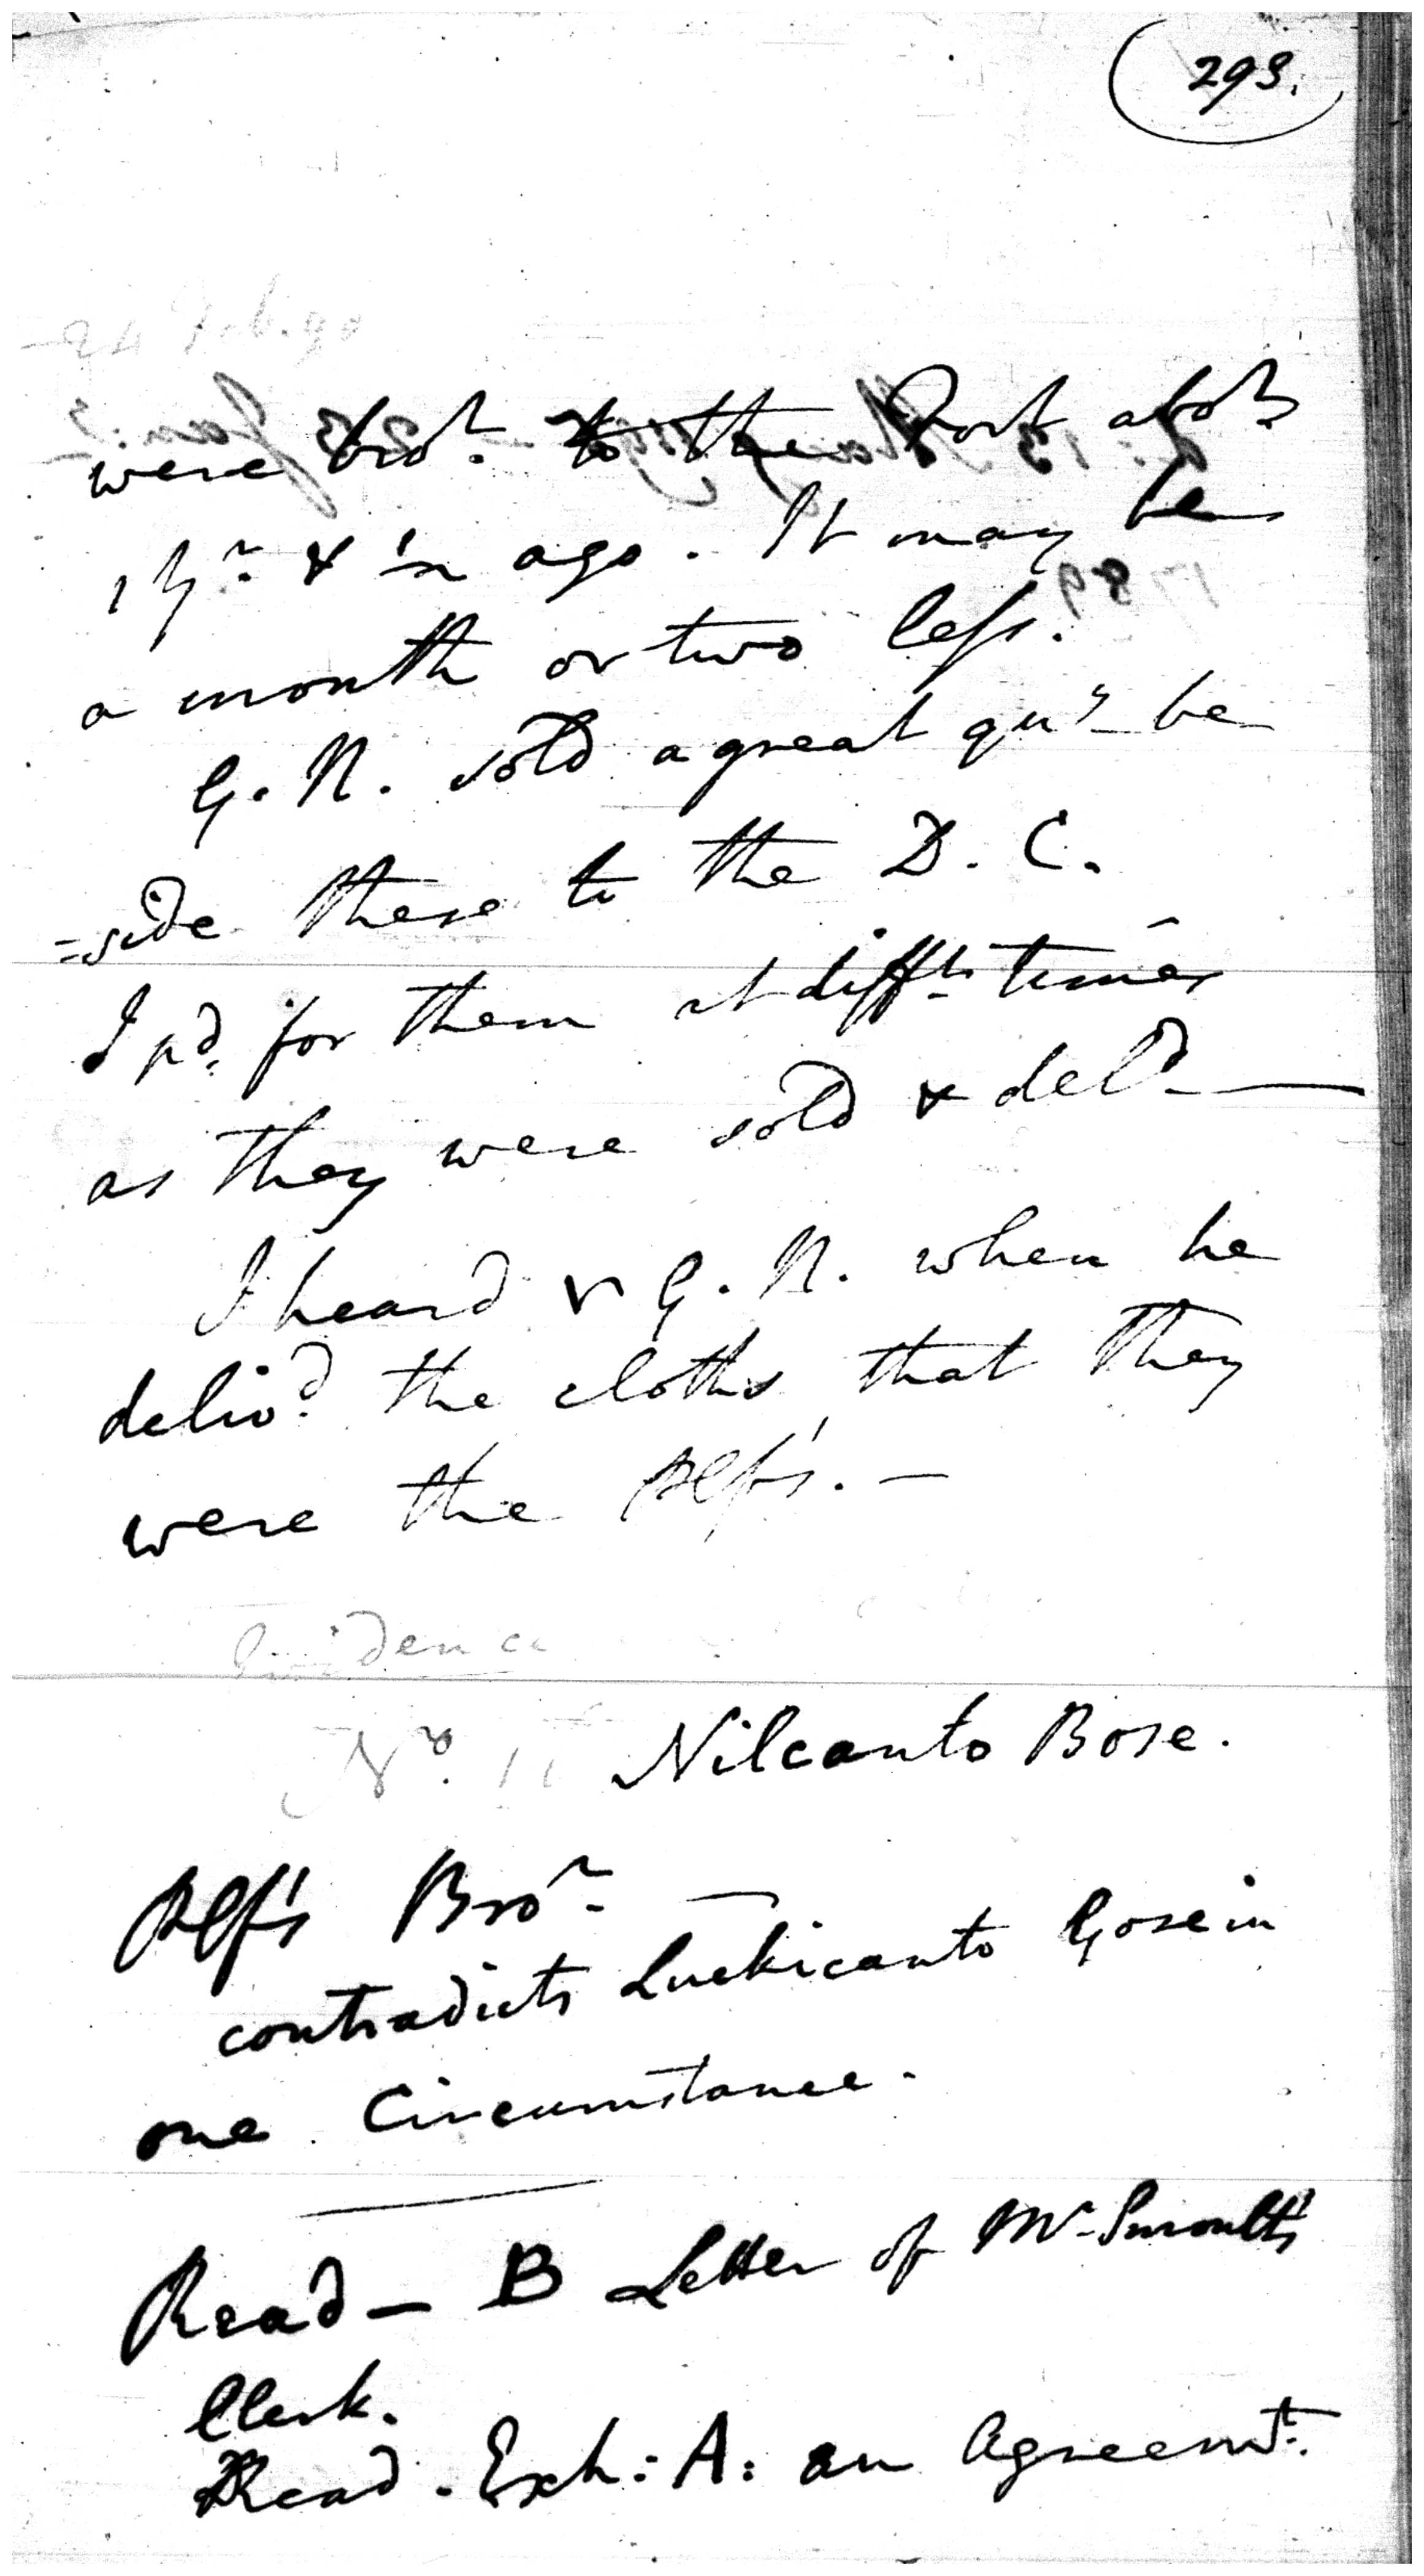 293.
24 Feb. 90
were bro.^t to the Port abo.^t
1 y.^r & ½ ago. It may be
a month or two less.
G. N. sold a great qu.^y be
=side these to the D. C.
I p.^d for them at diff.^t times
as they were sold & del.^d —
I heard G. N. when he
deliv.^d the cloths that they
were the Plf's. —
Evidence
N.^o 11 Nilcanto Bose.
Plf's Bro.^r —
contradicts Luckicanto Gosein
one Circumstance.
Read — B Letter of M.^r Smoult's
Clerk.
Read. Exh: A: an Agreem.^t